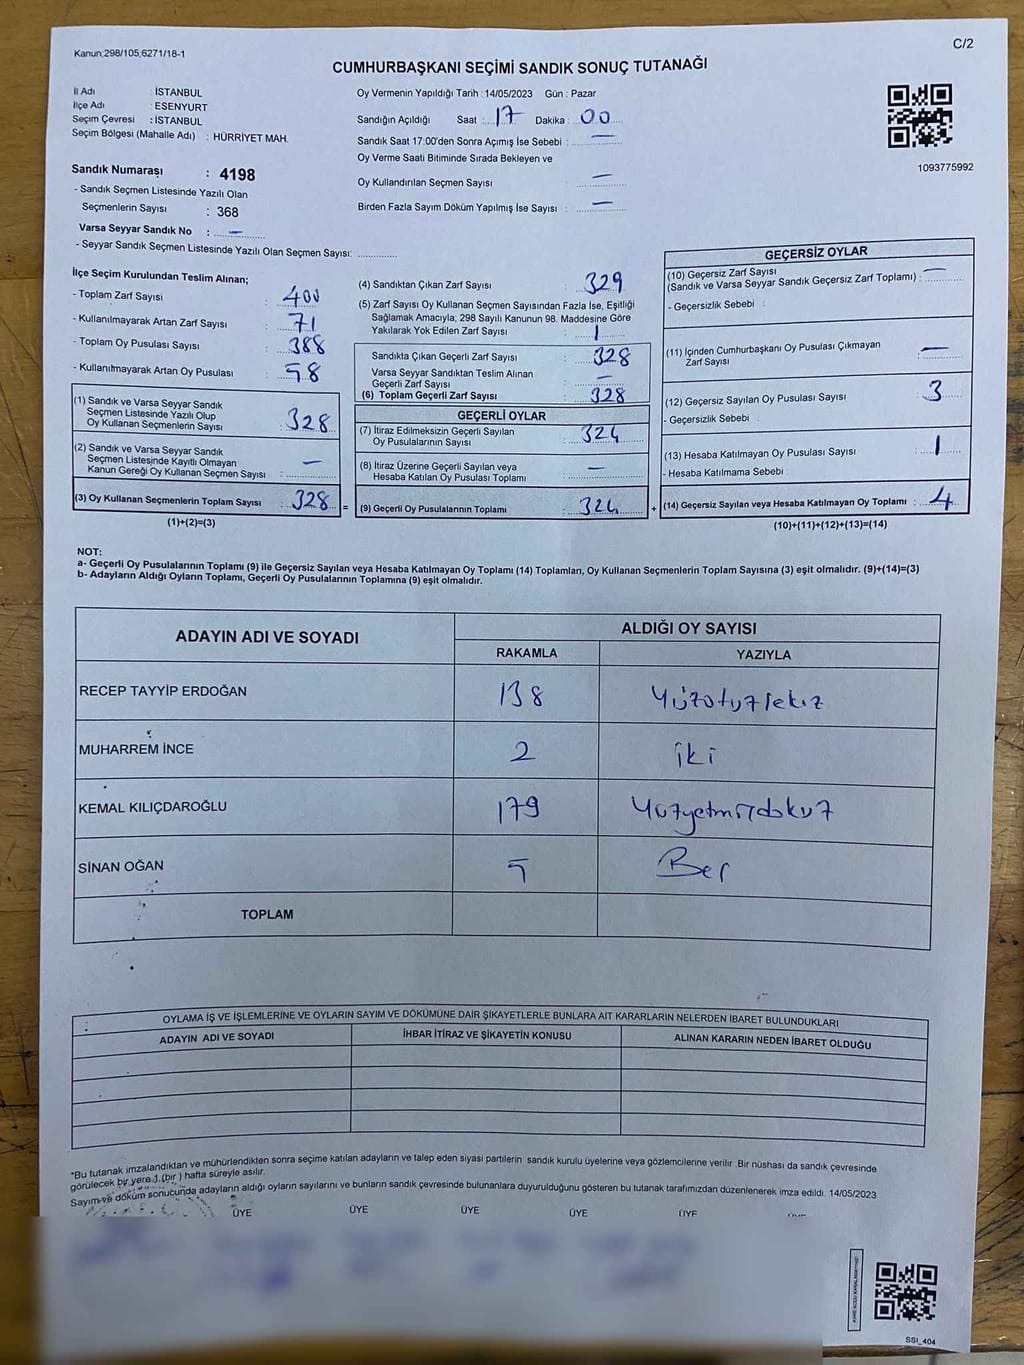 Kanun:298/105,6271/18-1
C/2
CUMHURBAŞKANI SEÇİMİ SANDIK SONUÇ TUTANAĞI
İl Adı : İSTANBUL
İlçe Adı : ESENYURT
Seçim Çevresi : İSTANBUL
Seçim Bölgesi (Mahalle Adı) : HÜRRİYET MAH.
Oy Vermenin Yapıldığı Tarih :14/05/2023 Gün : Pazar
Sandığın Açıldığı Saat : 17 Dakika : 00
Sandık Saat 17:00'den Sonra Açımış İse Sebebi : —
Oy Verme Saati Bitiminde Sırada Bekleyen ve
Oy Kullandırılan Seçmen Sayısı : —
Birden Fazla Sayım Döküm Yapılmış İse Sayısı : —
1093775992
Sandık Numarası : 4198
- Sandık Seçmen Listesinde Yazılı Olan
Seçmenlerin Sayısı : 368
Varsa Seyyar Sandık No : —
- Seyyar Sandık Seçmen Listesinde Yazılı Olan Seçmen Sayısı:
İlçe Seçim Kurulundan Teslim Alınan;
- Toplam Zarf Sayısı : 400
- Kullanılmayarak Artan Zarf Sayısı : 71
- Toplam Oy Pusulası Sayısı : 388
- Kullanılmayarak Artan Oy Pusulası : 58
(1) Sandık ve Varsa Seyyar Sandık
Seçmen Listesinde Yazılı Olup
Oy Kullanan Seçmenlerin Sayısı : 328
(2) Sandık ve Varsa Seyyar Sandık
Seçmen Listesinde Kayıtlı Olmayan
Kanun Gereği Oy Kullanan Seçmen Sayısı : —
(3) Oy Kullanan Seçmenlerin Toplam Sayısı : 328 =
(1)+(2)=(3)
(4) Sandıktan Çıkan Zarf Sayısı : 329
(5) Zarf Sayısı Oy Kullanan Seçmen Sayısından Fazla İse, Eşitliği
Sağlamak Amacıyla; 298 Sayılı Kanunun 98. Maddesine Göre
Yakılarak Yok Edilen Zarf Sayısı : 1
Sandıkta Çıkan Geçerli Zarf Sayısı : 328
Varsa Seyyar Sandıktan Teslim Alınan
Geçerli Zarf Sayısı : —
(6) Toplam Geçerli Zarf Sayısı : 328
GEÇERLİ OYLAR
(7) İtiraz Edilmeksizin Geçerli Sayılan
Oy Pusulalarının Sayısı : 324
(8) İtiraz Üzerine Geçerli Sayılan veya
Hesaba Katılan Oy Pusulası Toplamı : —
(9) Geçerli Oy Pusulalarının Toplamı : 324 +
GEÇERSİZ OYLAR
(10) Geçersiz Zarf Sayısı
(Sandık ve Varsa Seyyar Sandık Geçersiz Zarf Toplamı) : —
- Geçersizlik Sebebi :
(11) İçinden Cumhurbaşkanı Oy Pusulası Çıkmayan
Zarf Sayısı : —
(12) Geçersiz Sayılan Oy Pusulası Sayısı : 3
- Geçersizlik Sebebi :
(13) Hesaba Katılmayan Oy Pusulası Sayısı : 1
- Hesaba Katılmama Sebebi :
(14) Geçersiz Sayılan veya Hesaba Katılmayan Oy Toplamı : 4
(10)+(11)+(12)+(13)=(14)
NOT:
a- Geçerli Oy Pusulalarının Toplamı (9) ile Geçersiz Sayılan veya Hesaba Katılmayan Oy Toplamı (14) Toplamları, Oy Kullanan Seçmenlerin Toplam Sayısına (3) eşit olmalıdır. (9)+(14)=(3)
b- Adayların Aldığı Oyların Toplamı, Geçerli Oy Pusulalarının Toplamına (9) eşit olmalıdır.
ADAYIN ADI VE SOYADI
ALDIĞI OY SAYISI
RAKAMLA YAZIYLA
RECEP TAYYİP ERDOĞAN 138 Yüzotuzsekiz
MUHARREM İNCE 2 iki
KEMAL KILIÇDAROĞLU 179 Yüzyetmişdokuz
SİNAN OĞAN 5 Beş
TOPLAM
OYLAMA İŞ VE İŞLEMLERİNE VE OYLARIN SAYIM VE DÖKÜMÜNE DAİR ŞİKAYETLERLE BUNLARA AİT KARARLARIN NELERDEN İBARET BULUNDUKLARI
ADAYIN ADI VE SOYADI İHBAR İTİRAZ VE ŞİKAYETİN KONUSU ALINAN KARARIN NEDEN İBARET OLDUĞU
*Bu tutanak imzalandıktan ve mühürlendikten sonra seçime katılan adayların ve talep eden siyasi partilerin sandık kurulu üyelerine veya gözlemcilerine verilir .Bir nüshası da sandık çevresinde
görülecek bir yere 1 (bir ) hafta süreyle asılır.
Sayım ve döküm sonucunda adayların aldığı oyların sayılarını ve bunların sandık çevresinde bulunanlara duyurulduğunu gösteren bu tutanak tarafımızdan düzenlenerek imza edildi. 14/05/2023
ÜYE ÜYE ÜYE ÜYE ÜYE
SSI_404